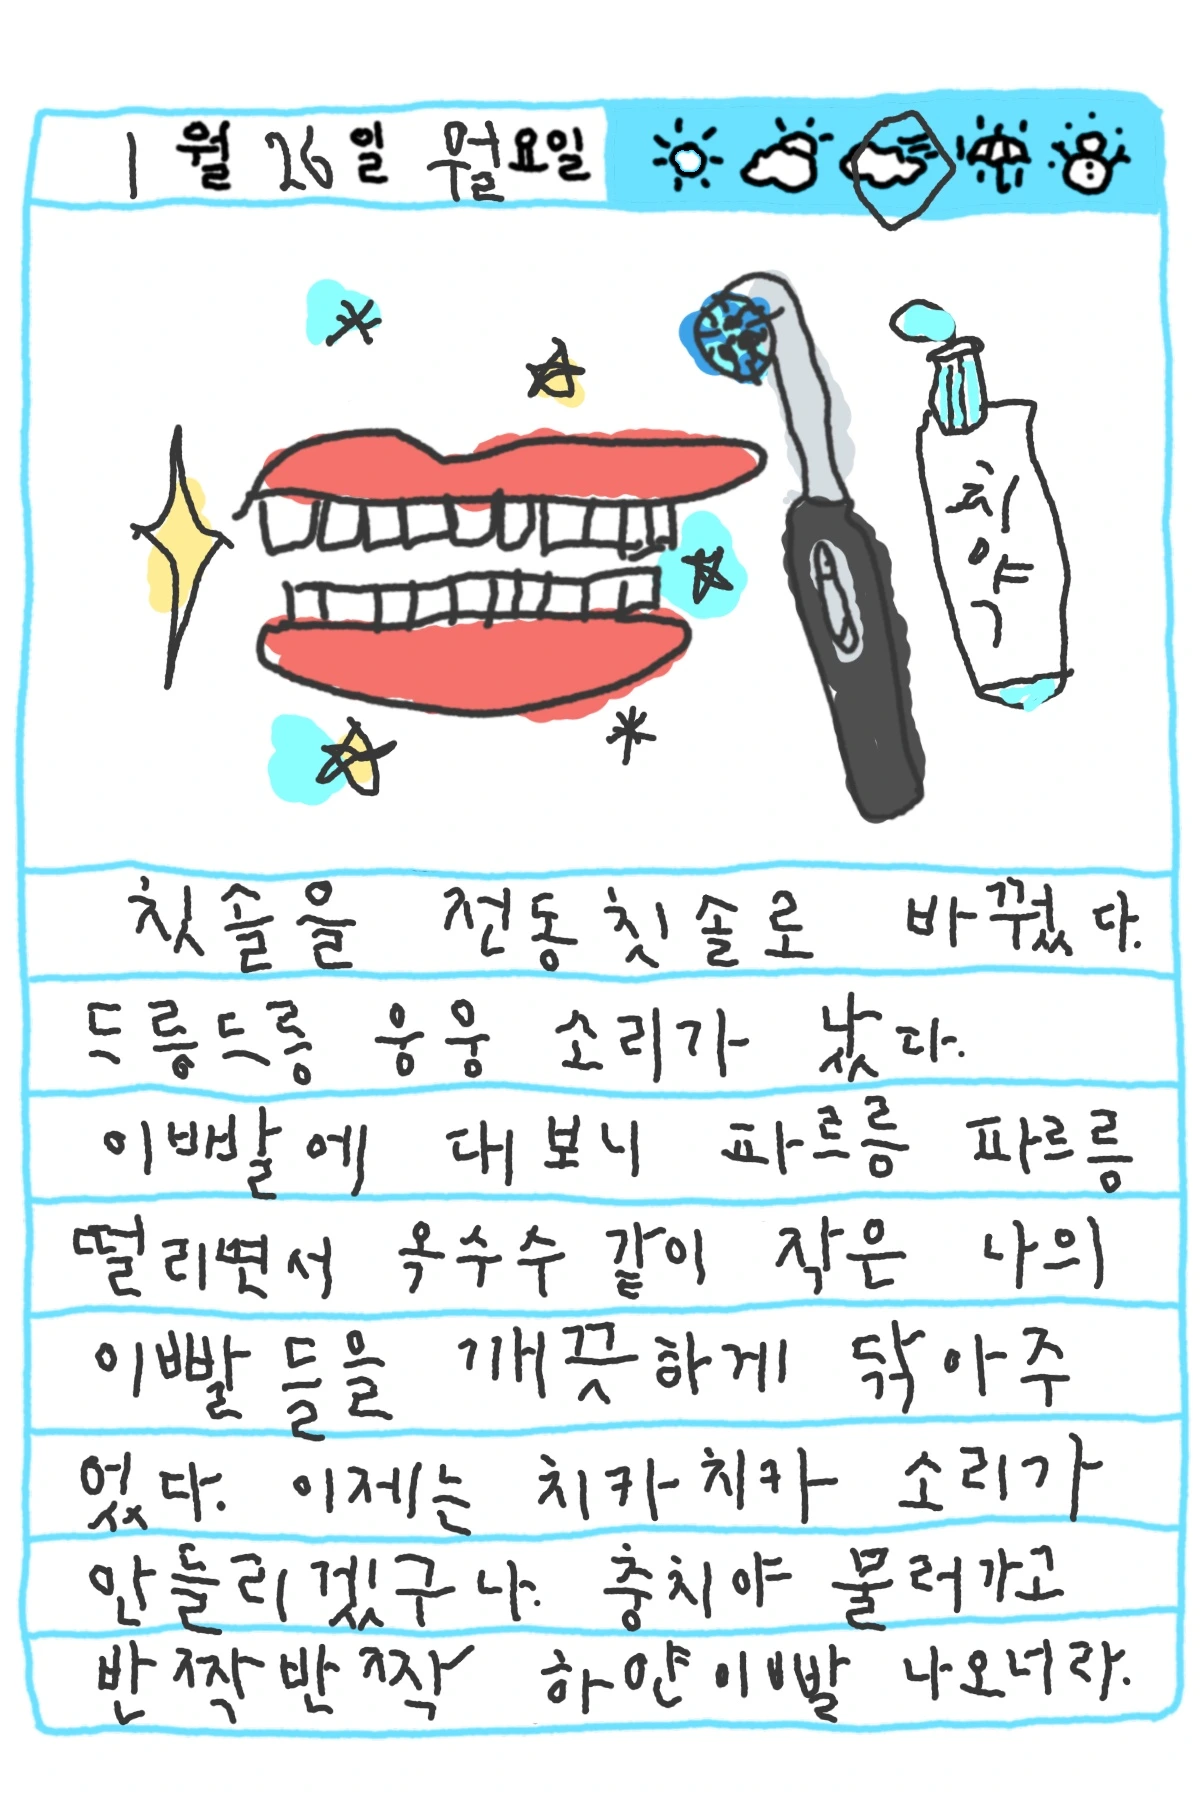 1월 26일 월요일
치약
칫솔을 전동칫솔로 바꿨다.
드릉드릉 웅웅 소리가 났다.
이빨에 대보니 파르릉 파르릉
떨리면서 옥수수 같이 작은 나의
이빨들을 깨끗하게 닦아주
었다. 이제는 치카치카 소리가
안들리겠구나. 충치야 물러가고
반짝반짝 하얀이빨 나오너라.